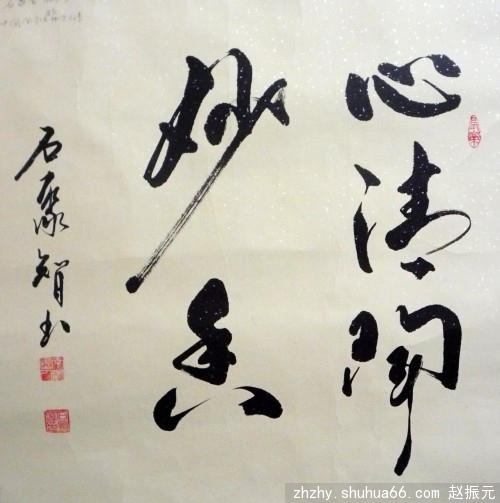 心清闻
妙香
石聚智书
zhzhy.shuhua66.com 赵振元